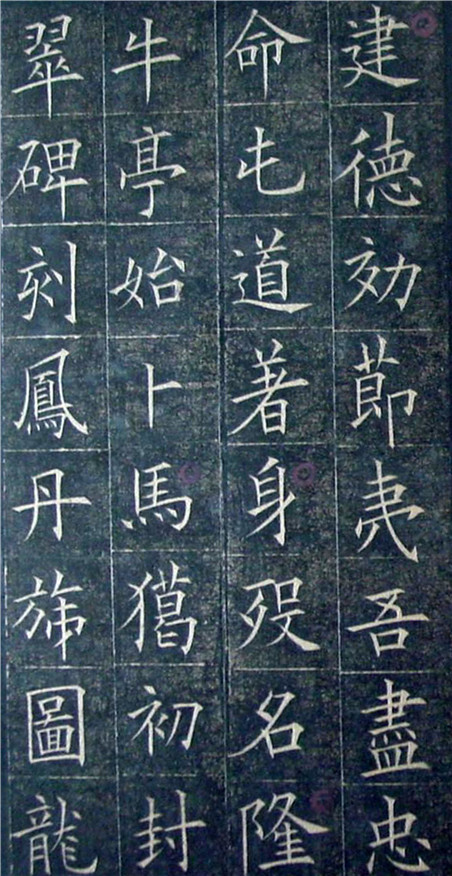 建德効節夷吾盡忠
命屯道著身歿名隆
牛亭始卜馬獦初封
翠碑刻鳳丹旆圖龍